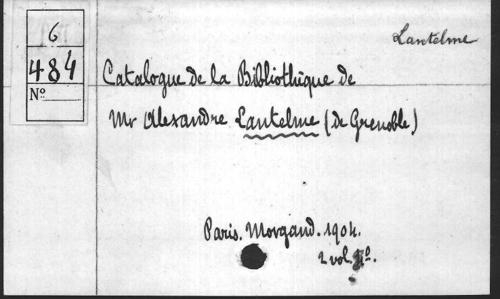 Lantelme
6
484
No
Catalogue de la Bibliothèque de
Mr Alexandre Lantelme (de Grenoble)
Paris. Morgand. 1904.
2 vol.